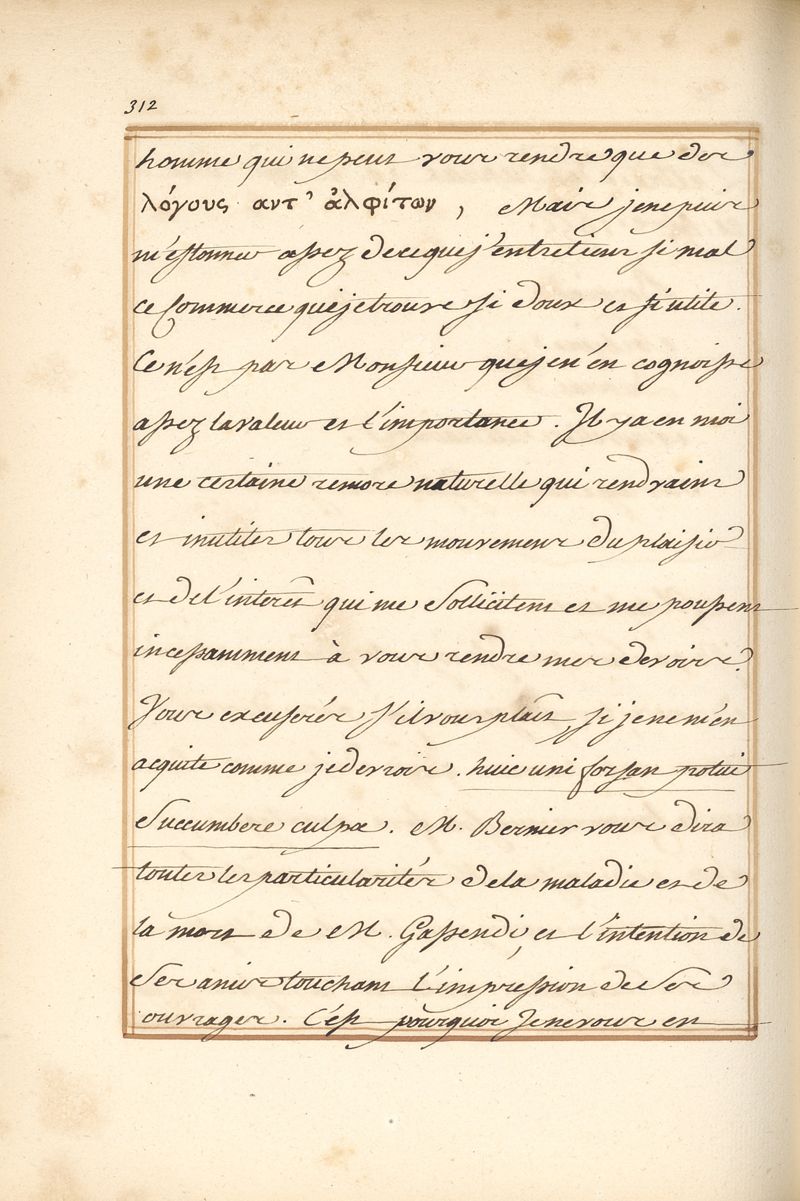 312
homme qui ne peut vous rendre que des
λόγους αντ' ἀλφίτων, Mais je ne puis
m'estonner assez de ce que j'entretiens si mal
ce Commerce que je trouve si doux et si utile.
Ce n'est pas Monsieur que je n'en cognoisse
assez la valeur et l'importance. Il y a en moi
une certaine remore naturelle qui rend vains
et inutiles tous les mouvemens du plaisir
et de l'interêt qui me Sollicitent et me poussent
incessamment à vous rendre mes devoirs.
Vous excuserés s'il vous plait, si je ne m'en
acquite comme je devrois. huic uni forsan potui
Succumbere culpæ. M. Bernier vous dira
toutes les particularités de la maladie et de
la mort de M. Gassendi, et l'intention de
Ses amis touchant l'impression de Ses
ouvrages. C'est pourquoi Je ne vous en